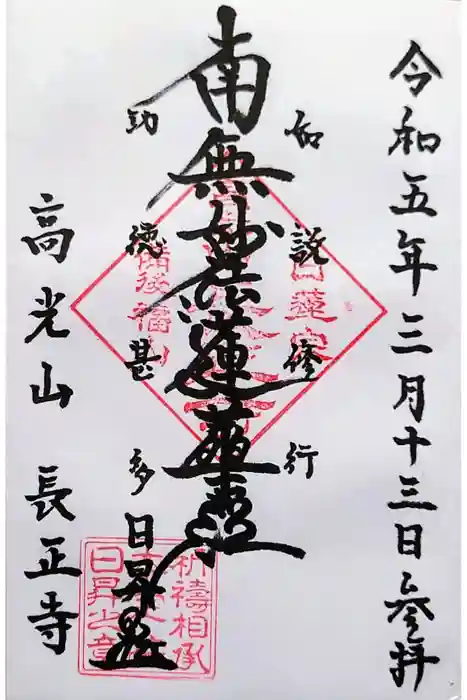 令和五年三月十三日参拝
如説修行
南無妙法蓮華經
功徳甚多
日昇
高光山 長正寺
日蓮宗
備後福山
祈禱相承
日昇之章